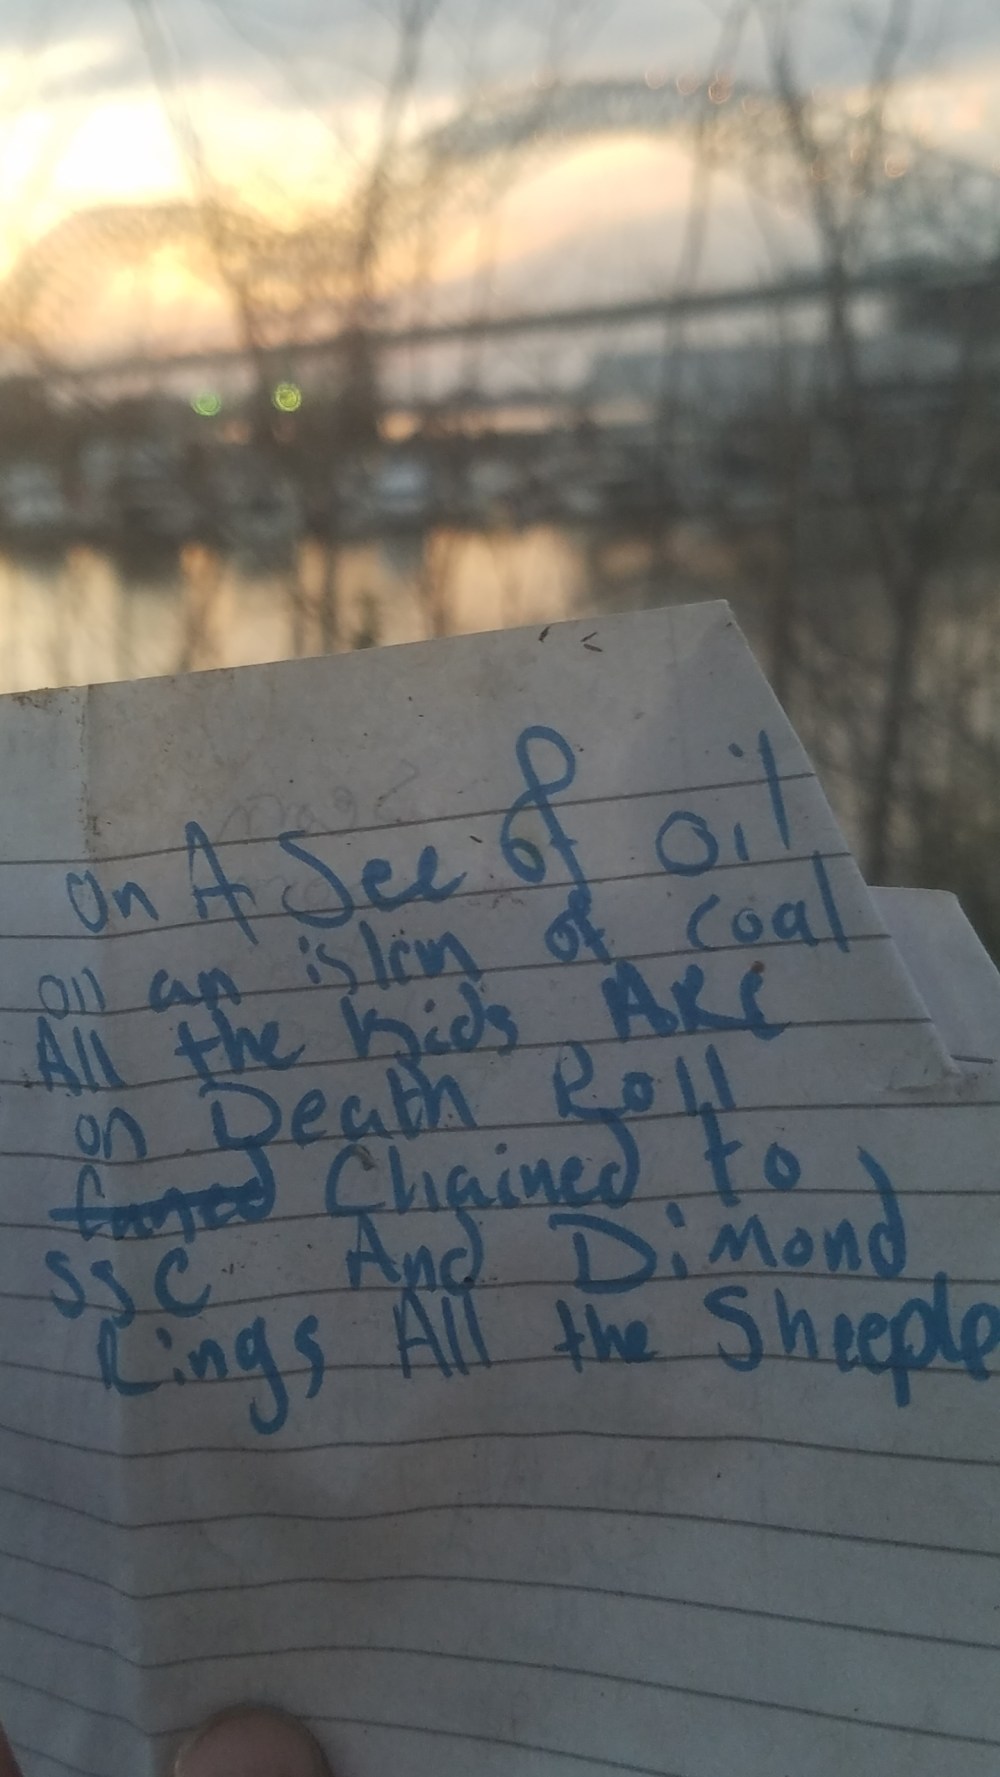 On A See of oil
on an islen of coal
All the kids ARe
on Death Roll
Chained to
SSC And Dimond
Rings All the Sheeple